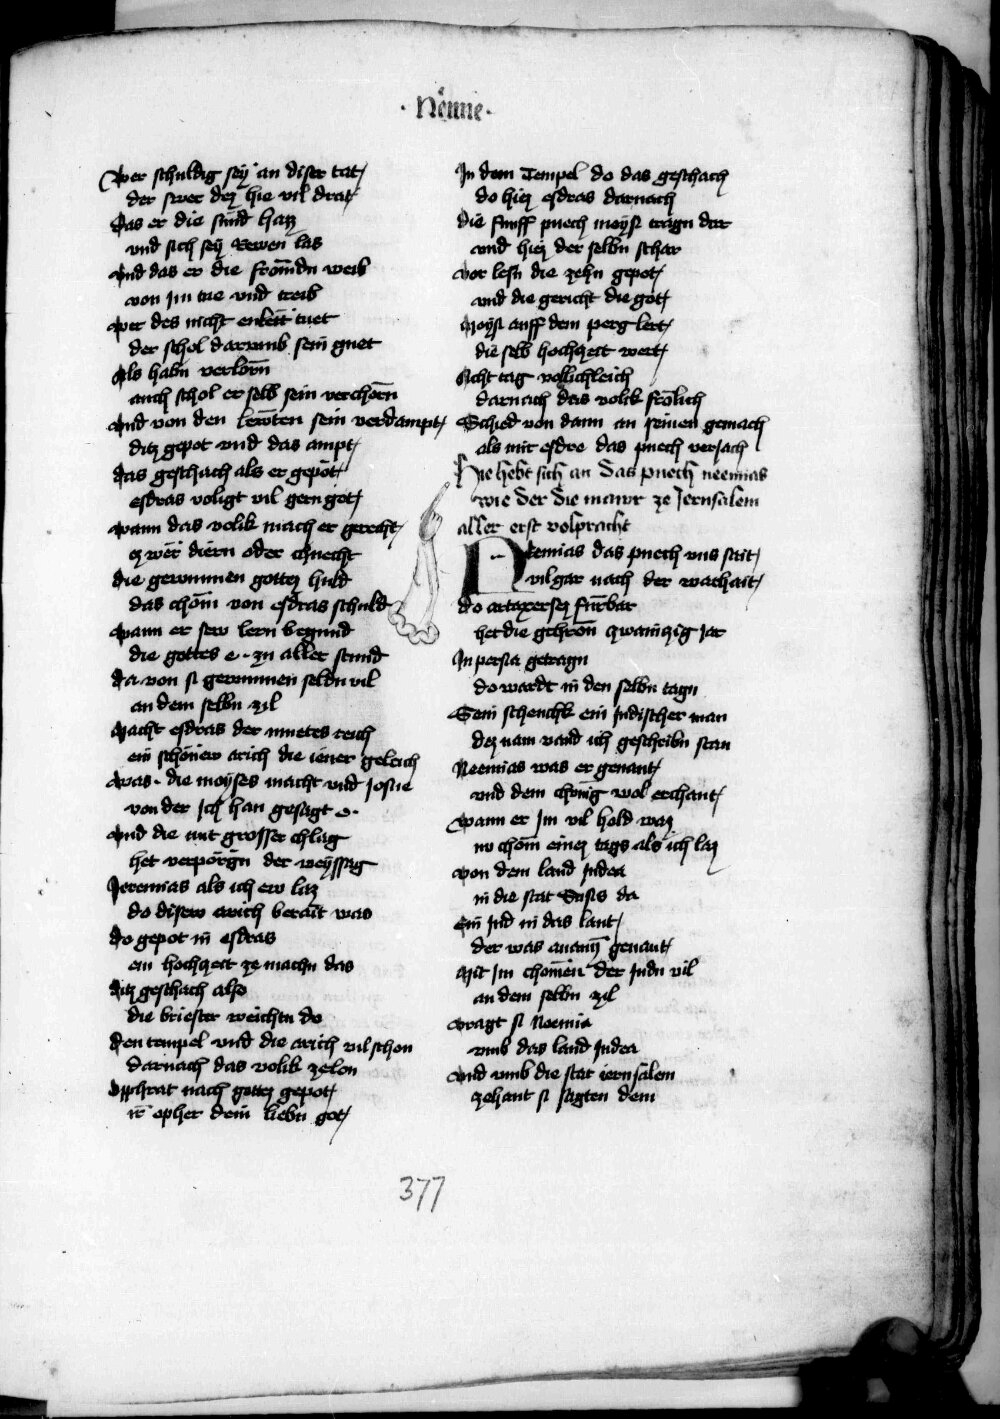 · Nëmie ·
Wer schuldig seÿ an diser tat
der swer dez hie vil drat
Das er die sünd haz
und sich seÿ rewen las
Und das er die frömdn weib
von jm tue vnd treib
Wer des nicht enleitt tuet
der schol darumb sein guet
Als habn verlorn
auch schol er selb sein verchorn
Und von den lewten sein verdampt
ditz gepot vnd das ampt
Das geschach als er gepot
esdras voligt vil gern got
Wann das volik mach er gerecht
ez wer diern oder chnecht
Die gewunnen gottez huld
das chöm von esdras schuld
Wann er sew lern begund
die gottes e · zu aller stund
Da von si gewunnen seldn vil
an dem selbn zil
Macht esdras der muetes reich
ein schönew arich die iener geleich
Was · die moÿses macht vnd josue
von der jch han gesagt e ·
Und die mit grosser chlag
het verporgn der weÿssag
Jeremias als ich ew laz
do disew arich berait was
Do gepot in esdras
ein hochzeit ze machn das
Ditz geschach also
die briester weichtn do
Den tempel vnd die arich vil schon
darnach das volik zelon
Opphrat nach gottez gepot
ir opher dem liebn got
In dem Tempel do das geschach
do hiez esdras darnach
Die fümff puech moÿsi tragn dar
vnd hiez der selbn schar
Vor lesn die zehn gepot
vnd die gericht die got
Moÿsi auff dem perg lert
die selb hochzeit wert
Acht tag vollichleich
darnach das volik frölich
Schied von dann an jrinen gemach
als mit esdre das puech verjach
Hie hebt sich an das puech neemias
wie der die mawr ze Jerusalem
aller erst volpracht
Neemias das puech vns sait
vil gar nach der warhait
Do artaxersez fürbar
het die gchron zwainzig jar
In persia getragn
do wardt in den selbn tagn
Sein schenchk ein judischer man
dez nam vand ich geschribn stan
Neemias was er genant
vnd dem chönig wol erchant
Wann er jm vil hold waz
nv chöm einez tags als ich laz
Von dem land Judea
in die stat Susis da
Ein jud in das lant
der was ananÿ genant
Mit jm chomen der judn vil
an dem selbn zil
Vragt si Noemia
vmb das land Judea
Und vmb die stat ierusalem
zehant si sagten dem
377